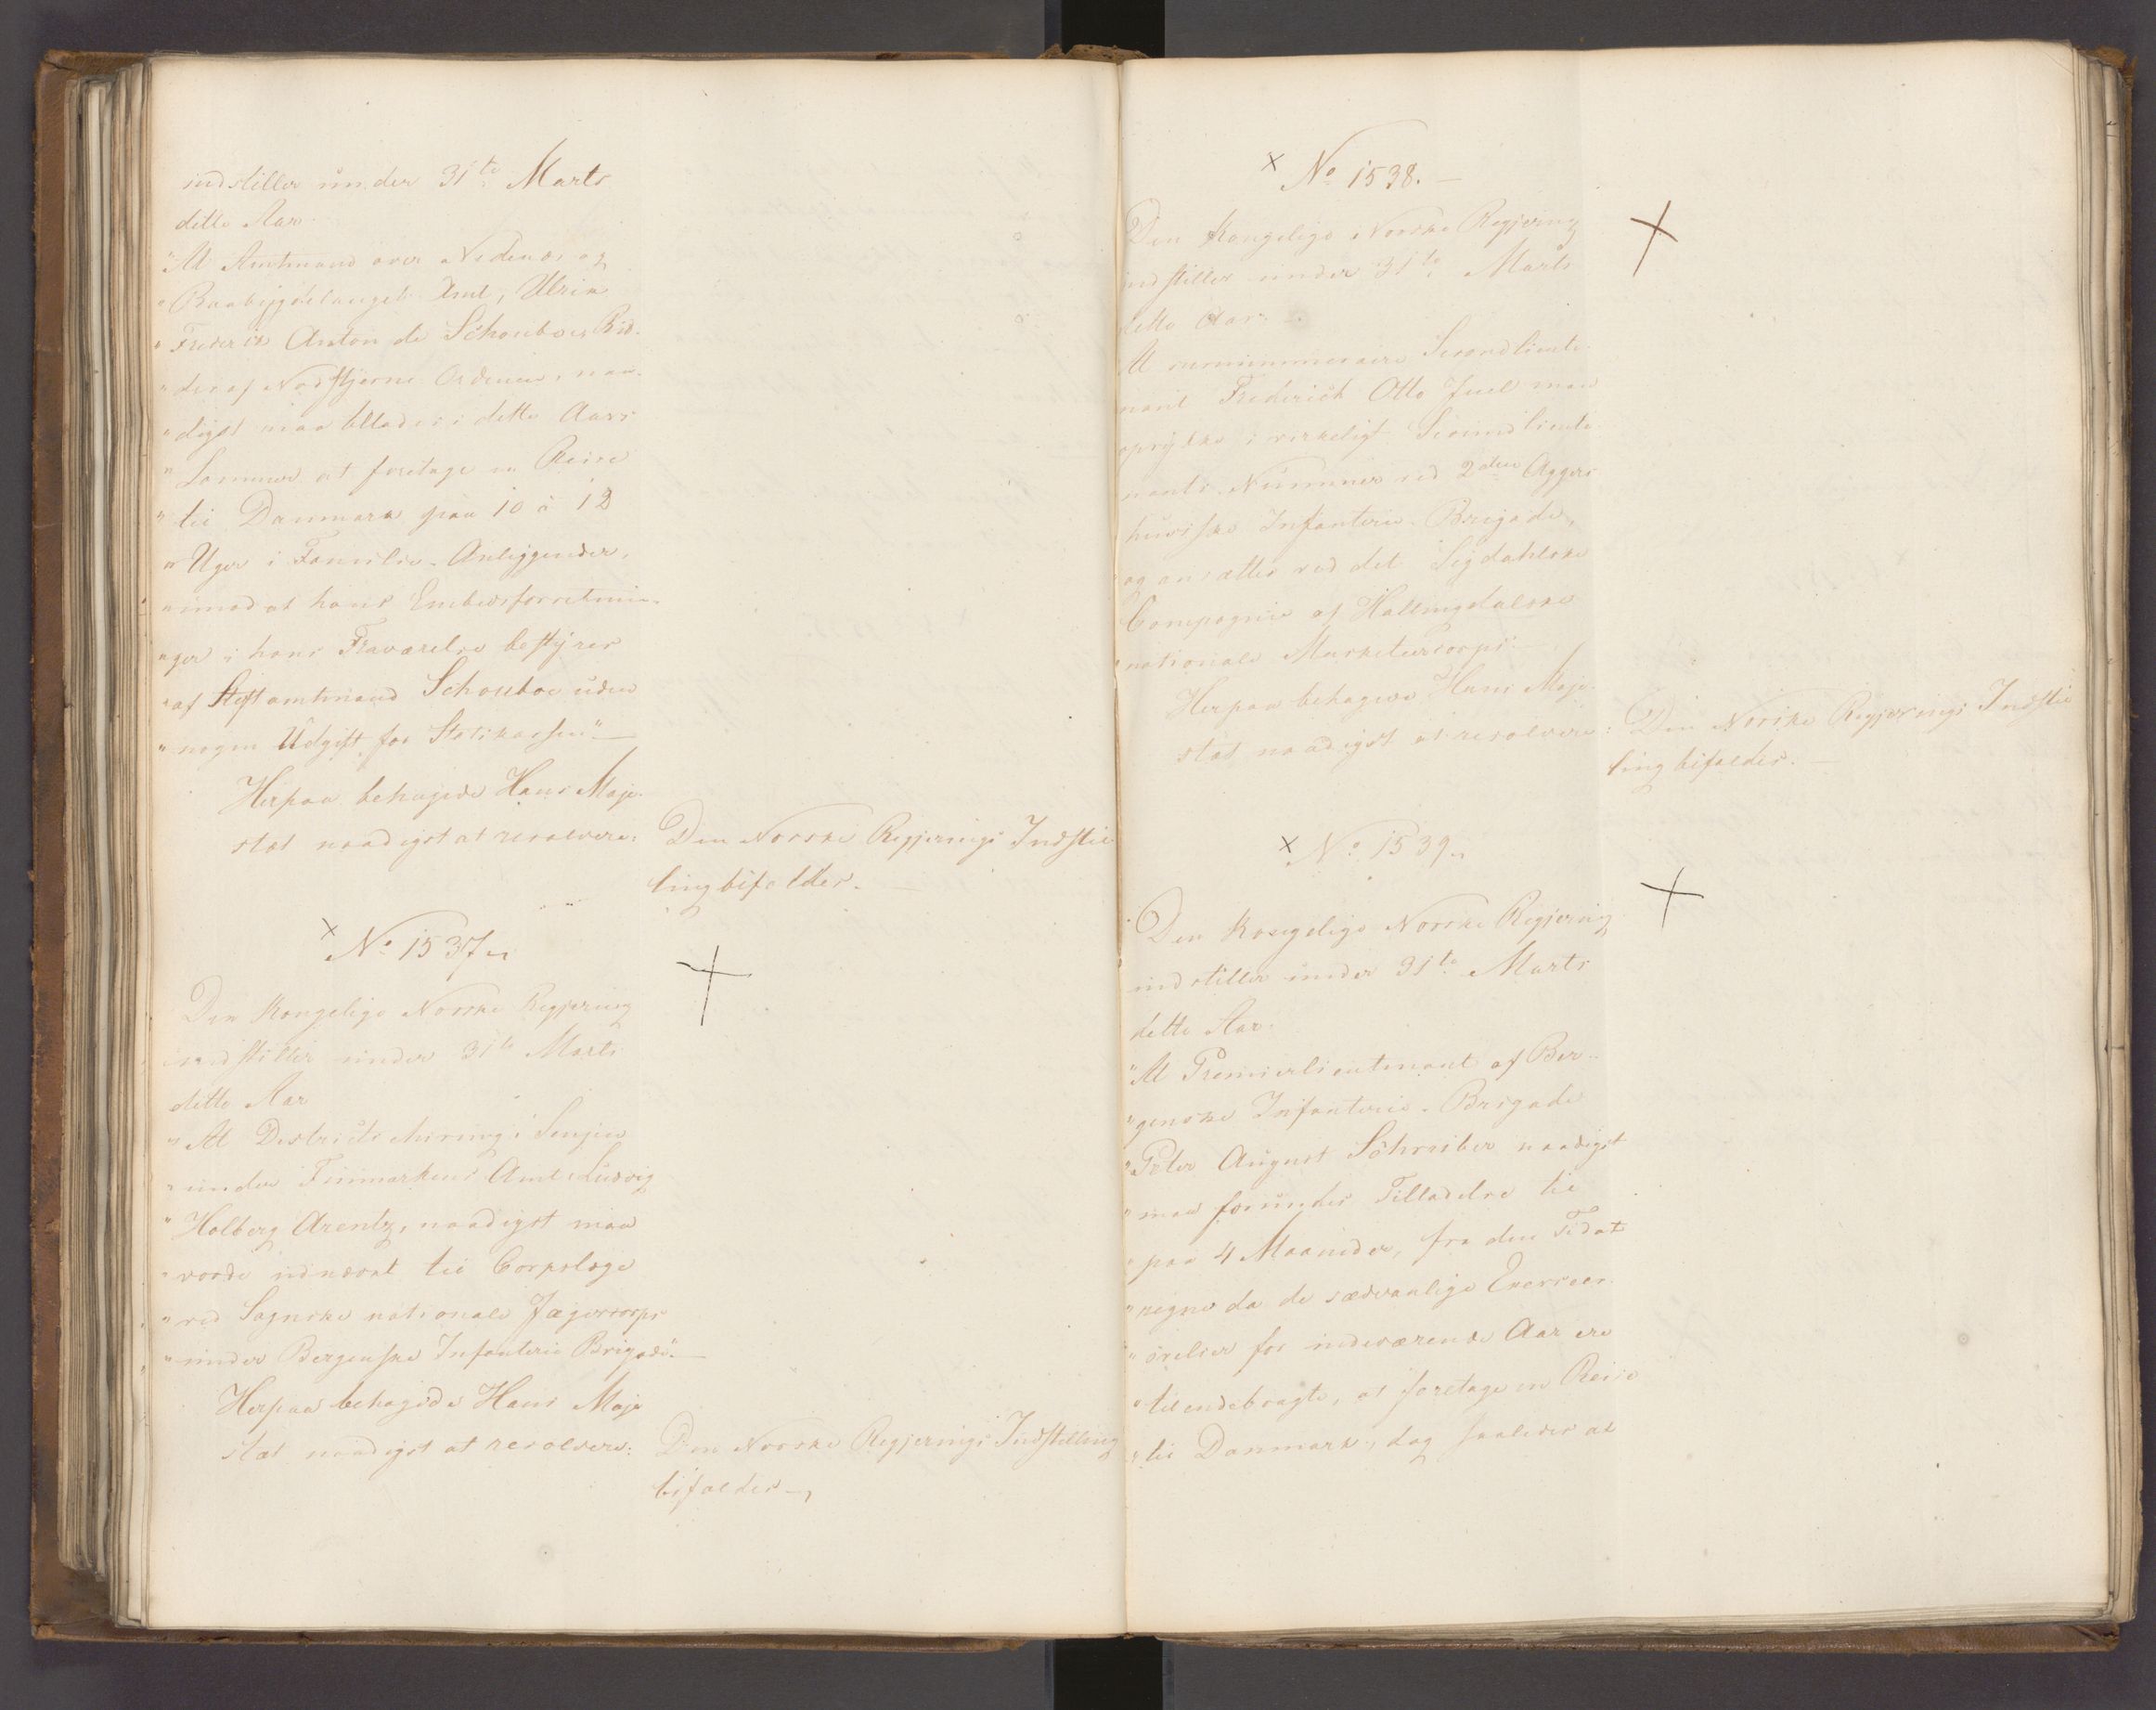 indstiller under 31te Marts
dette Aar.
"At Amtmand over Nedenæs og
"Raabygdelaugets Amt, Ulrik
"Frederik Anton de Schouboe, Rid-
"der af Nordstjerne Ordenen, naa-
"digst maa tillades i dette Aars
"Sommer at foretage en Reise
"til Danmark paa 10 à 12
"Uger i Familie-Anliggender,
"imod at hans Embedsforretnin-
"ger i hans Fraværelse bestyres
"af Stiftamtmand Schouboe uden
"nogen Udgift for Statskassen".—
Herpaa behagede Hans Maje-
stæt naadigst at resolvere:
Den Norske Regjerings Indstil-
ling bifaldes.
x No 1537.
Den Kongelige Norske Regjering
indstiller under 31te Marts
dette Aar
"At Districtschirurg i Senjen
"under Finmarkens Amt Ludvig
"Holberg Arentz, naadigst maa
"vorde udnævnt til Corpslæge
"ved Sognske nationale Jægercorps
"under Bergenske Infanterie Brigade".—
Herpaa behagede Hans Maje
stæt naadigst at resolvere:
Den Norske Regjerings Indstilling
bifaldes.—
x No 1538.—
Den Kongelige Norske Regjering
indstiller under 31te Marts
dette Aar.—
At surnummeraire Secondlieute-
nant Frederich Otto Juel maa
oprykke i virkeligt Secondlieute-
nants Nummer ved 2den Aggers
huusiske Infanterie-Brigade,
og ansættes ved det Sigdahlske
Compagnie af Hallingdalske
nationale Musketeercorps".—
Herpaa behagede Hans Maje-
stæt naadigst at resolvere:
Den Norske Regjerings Indstil
ling bifaldes.—
x No 1539.
Den Kongelige Norske Regjering
indstiller under 31te Marts
dette Aar.
"At Premierlieutnant af Ber-
"genske Infanterie-Brigade
"Peter August Schreiber naadigst
"maa forundes Tilladelse til
"paa 4 Maaneder, fra den Tid at
"regne da de sædvanlige Exerceer-
"øvelser for indeværende Aar ere
"tilendebragte, at foretage en Reise
"til Danmark, dog saaledes at